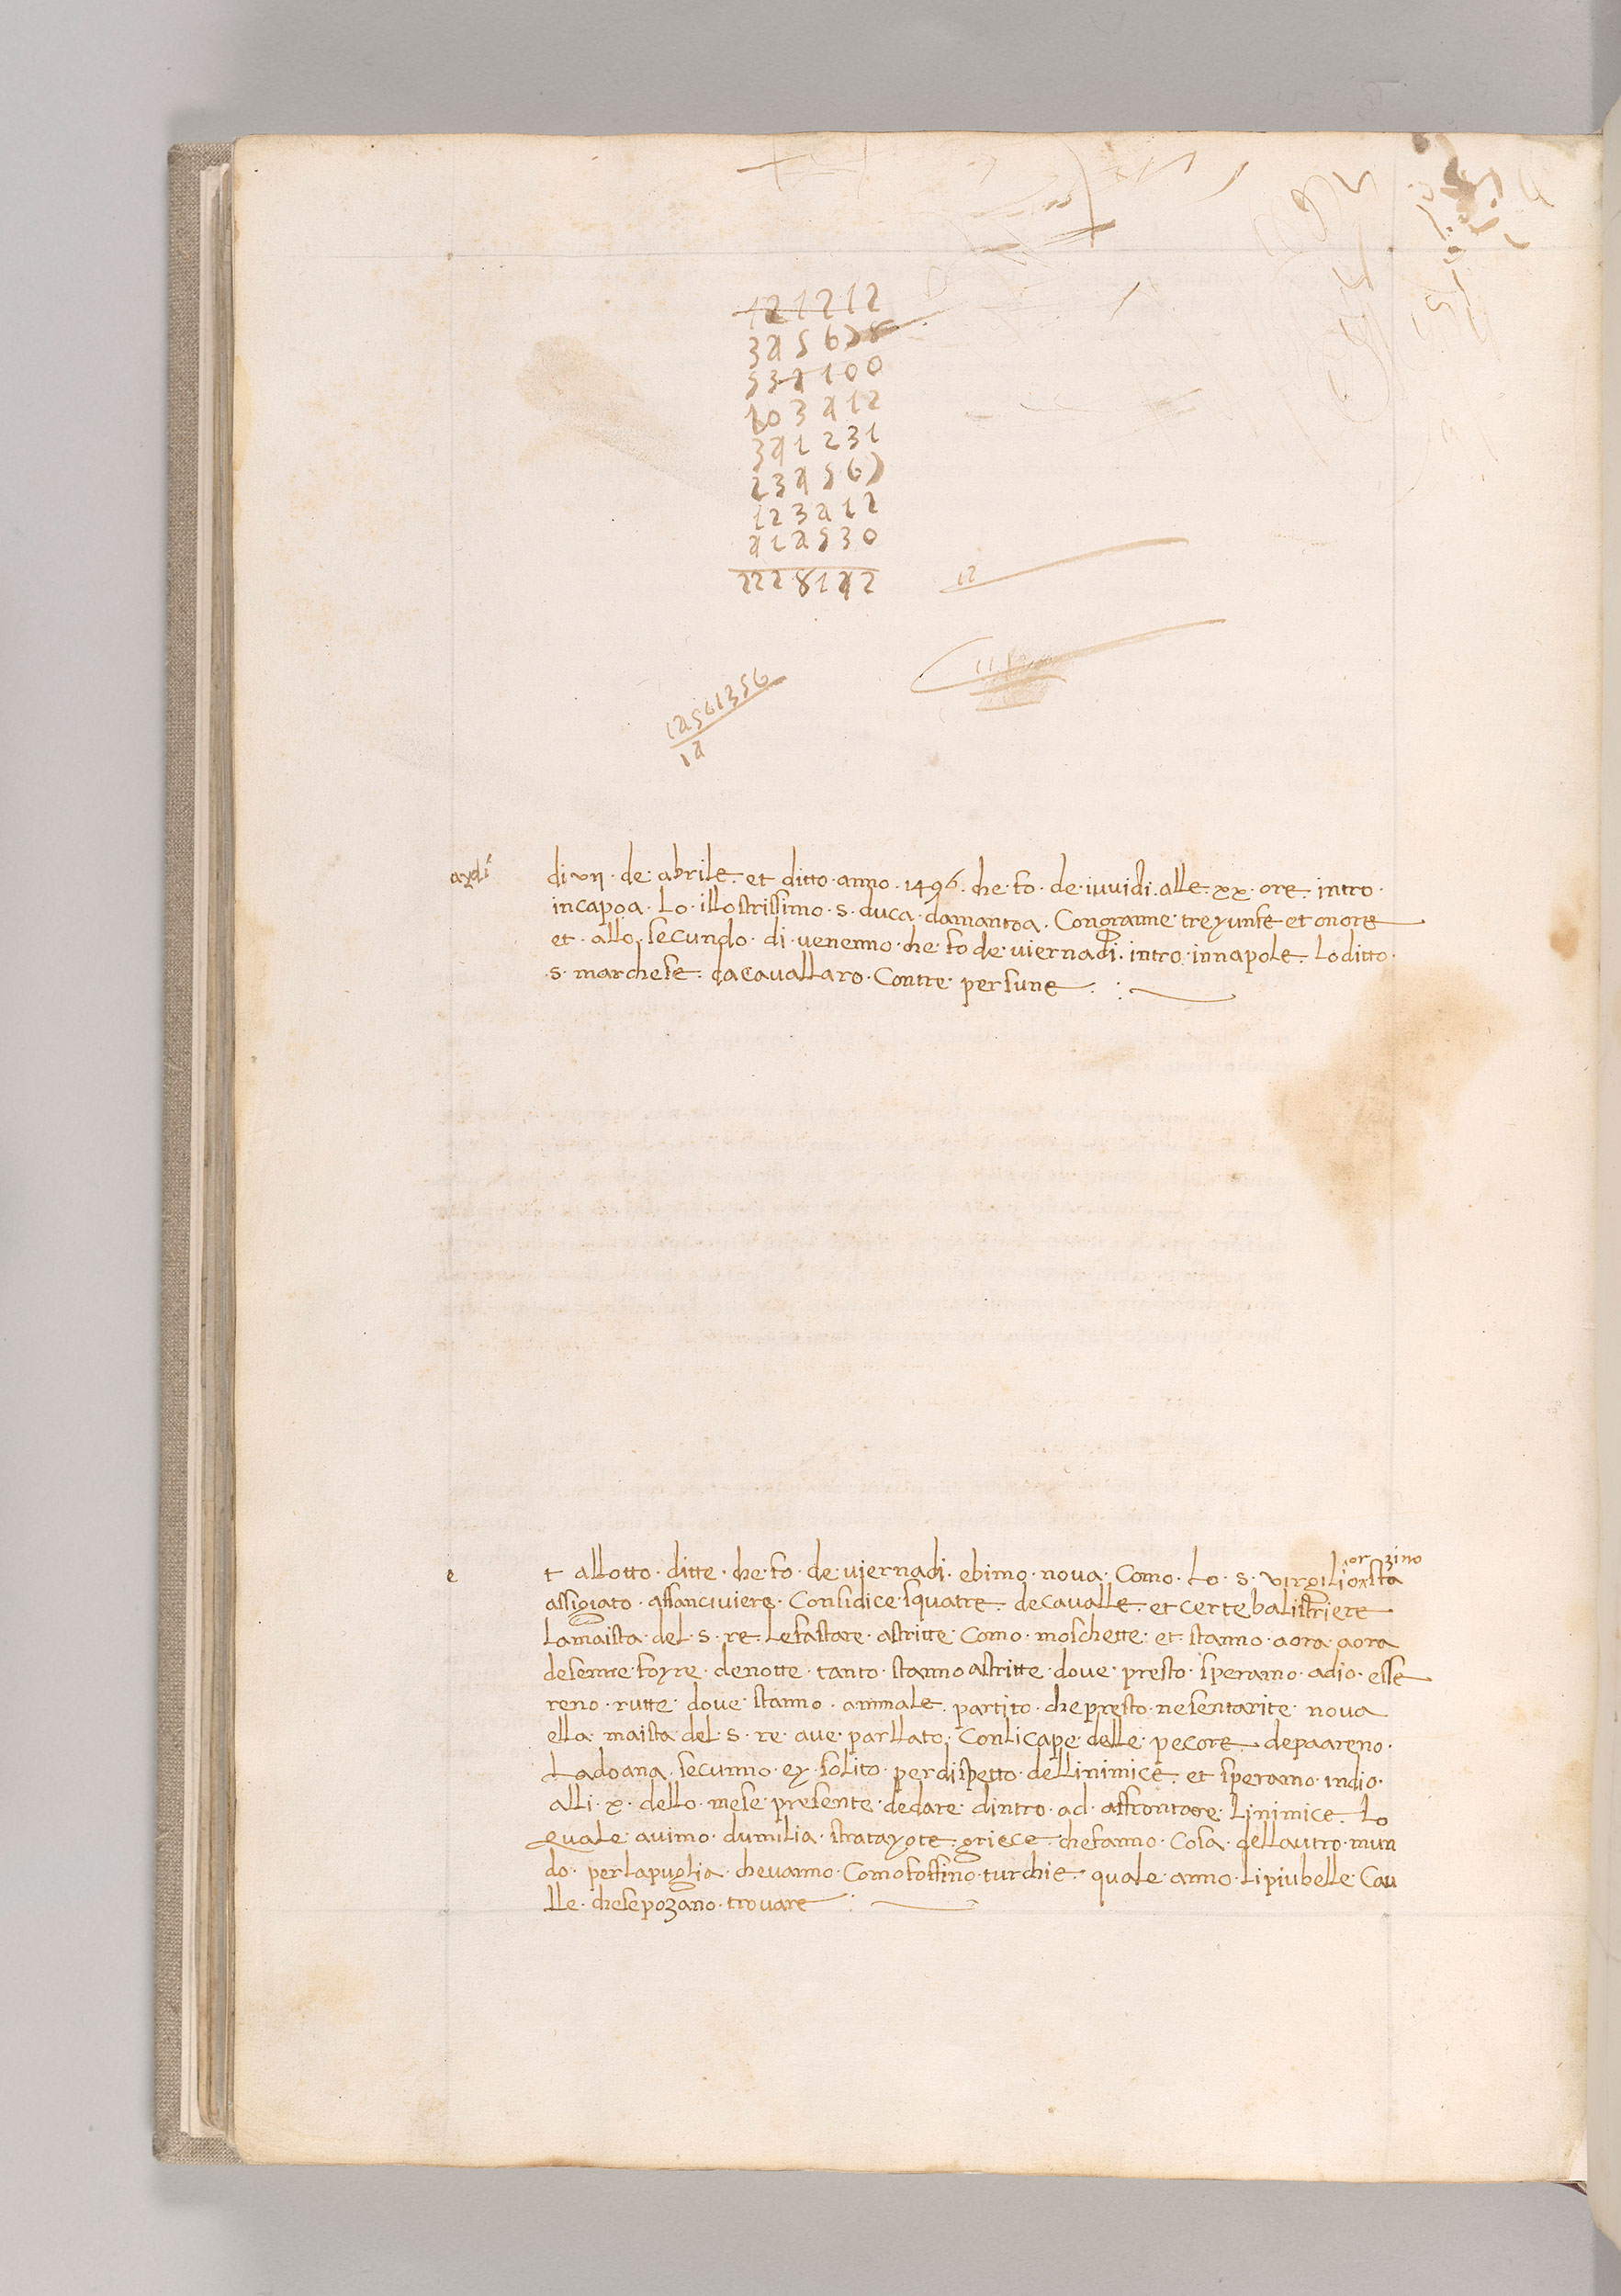 121212
345678
534100
103412
341231
234567
123412
414530
2228142
12
14561356
14
axdi di vii · de · abrile · et ditto · anno · 1496 · che · fo · de · iuvidi · alle · xx · ore · intro ·
incapoa · Lo · illostrissimo · s · duca · damantoa · Congranne · treyunfe et onore
et · allo · secundo · di · venenno · che · fo de · viernadi · intro · innapole · Lo ditto ·
· s · marchese · dacavallaro · Contre · persune
e t allotto · ditte · che · fo · de · viernadi · ebimo · nova · Como · Lo · s · virgilio sta
or zino
assigiato · affanciviere · Considice · squatre · decavalle · et certe balistriere
Lamaista · del · s · re · Lefastare · astritte · Como · moschette · et · stanno · aora · aora
desenne foyre · denotte · tanto · stanno astritte · dove · presto · speramo · adio · esse
reno · rutte · dove stanno · ammale · partito · chepresto · nesentarite · nova
ella · maista del · s · re · ave · parllato · Conlicape · delle · pecore · depaareno ·
Ladoana · secunno · ey · solito · perdispetto · dellinimice · et speramo · indio ·
alli · x · dello · mese · presente · dedare · dintro · ad · affrontare · Linimice · Lo
quale · avimo · dumilia · stratayote · griece · chefanno · Cosa · dellautro · mun
do · perlapuglia · chevanno · Comofossino · turchie · quale · anno · Lipiubelle · Cau
lle · chesepozano · trovare